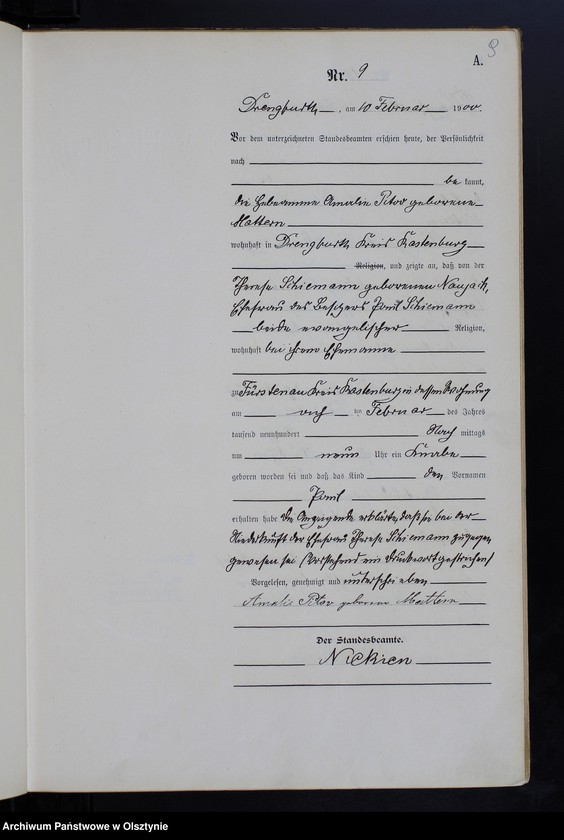 9
A.
Nr. 9
Drengfurth, am 10 Februar 1900.
Vor dem unterzeichneten Standesbeamten erschien heute, der Persönlichkeit
nach
be kannt,
die Hebeamme Amalie Pitor geborene
Mattern
wohnhaft in Drengfurth Kreis Rastenburg
Religion, und zeigte an, daß von der
Therese Schiemann geborenen
Ehefrau des Besitzers Paul Schiemann
beide evangelischer Religion,
wohnhaft bei ihrem Ehemanne
zu Fürstenau Kreis Rastenburg in dessen Wohnung
am acht ten Februar des Jahres
tausend neunhundert Nach mittags
um neun Uhr ein Knabe
geboren worden sei und daß das Kind den Vornamen
Paul
erhalten habe Die Anzeigende erklärte, daß sie bei der
Niederkunft der Ehefrau Therese Schiemann zugegen
gewesen sei (Vorstehend ein Druckwort gestrichen)
Vorgelesen, genehmigt und unterschrieben
Amalie Pitor geborene Mattern
Der Standesbeamte.
Nickien
Archiwum Państwowe w Olsztynie